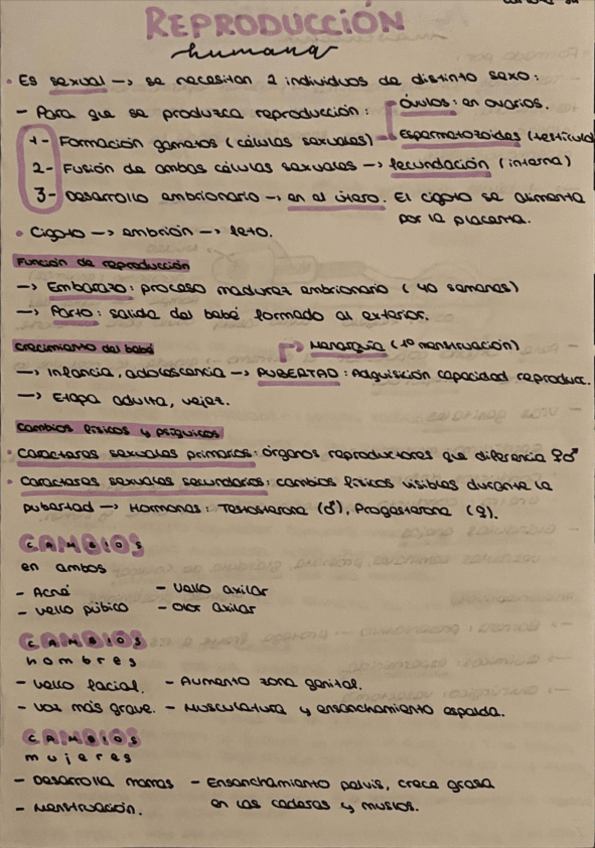 REPRODUCCIÓN
humana
• Es sexual —> se necesitan 2 individuos de distinto sexo:
- Para que se produzca reproducción: óvulos: en ovarios.
1- Formación gametos (células sexuales) - Espermatozoides (testícul
2- Fusión de ambas células sexuales —> fecundación (interna)
3- Desarrollo embrionario —> en el útero. El cigoto se alimenta
por la placenta.
• Cigoto —> embrión —> feto.
Función de reproducción
—> Embarazo: proceso madurez embrionario (40 semanas)
—> Parto: salida del bebé formado al exterior.
Crecimiento del bebé
Menarquia (1ª menstruación)
—> Infancia, adolescencia —> PUBERTAD: Adquisición capacidad reproduct.
—> Etapa adulta, vejez.
Cambios físicos y psíquicos
• Caracteres sexuales primarios: órganos reproductores que diferencia ♀♂
• Caracteres sexuales secundarios: cambios físicos visibles durante la
pubertad —> Hormonas: Testosterona (♂), Progesterona (♀).
CAMBIOS
en ambos
- Acné - Vello axilar
- Vello púbico - Olor axilar
CAMBIOS
hombres
- Vello facial. - Aumento zona genital.
- Voz más grave. - Musculatura y ensanchamiento espalda.
CAMBIOS
mujeres
- Desarrolla mamas - Ensanchamiento pelvis, crece grasa
en las caderas y muslos.
- Menstruación.